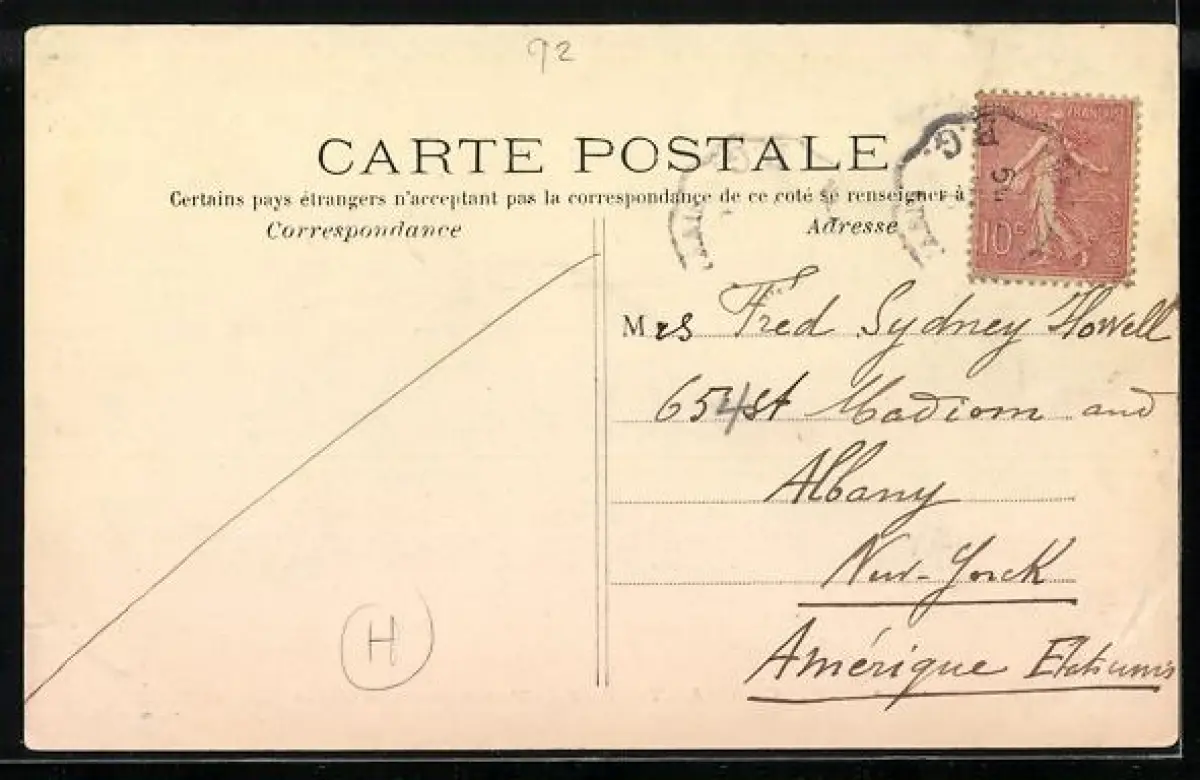 92
CARTE POSTALE
Certains pays étrangers n'acceptant pas la correspondance de ce coté se renseigner à
Correspondance
Adresse
FRANÇAISE
10c
Mrs Fred Sydney Howell
654 st Madiom and
Albany
New-Yorck
Amérique Etatsunis
H